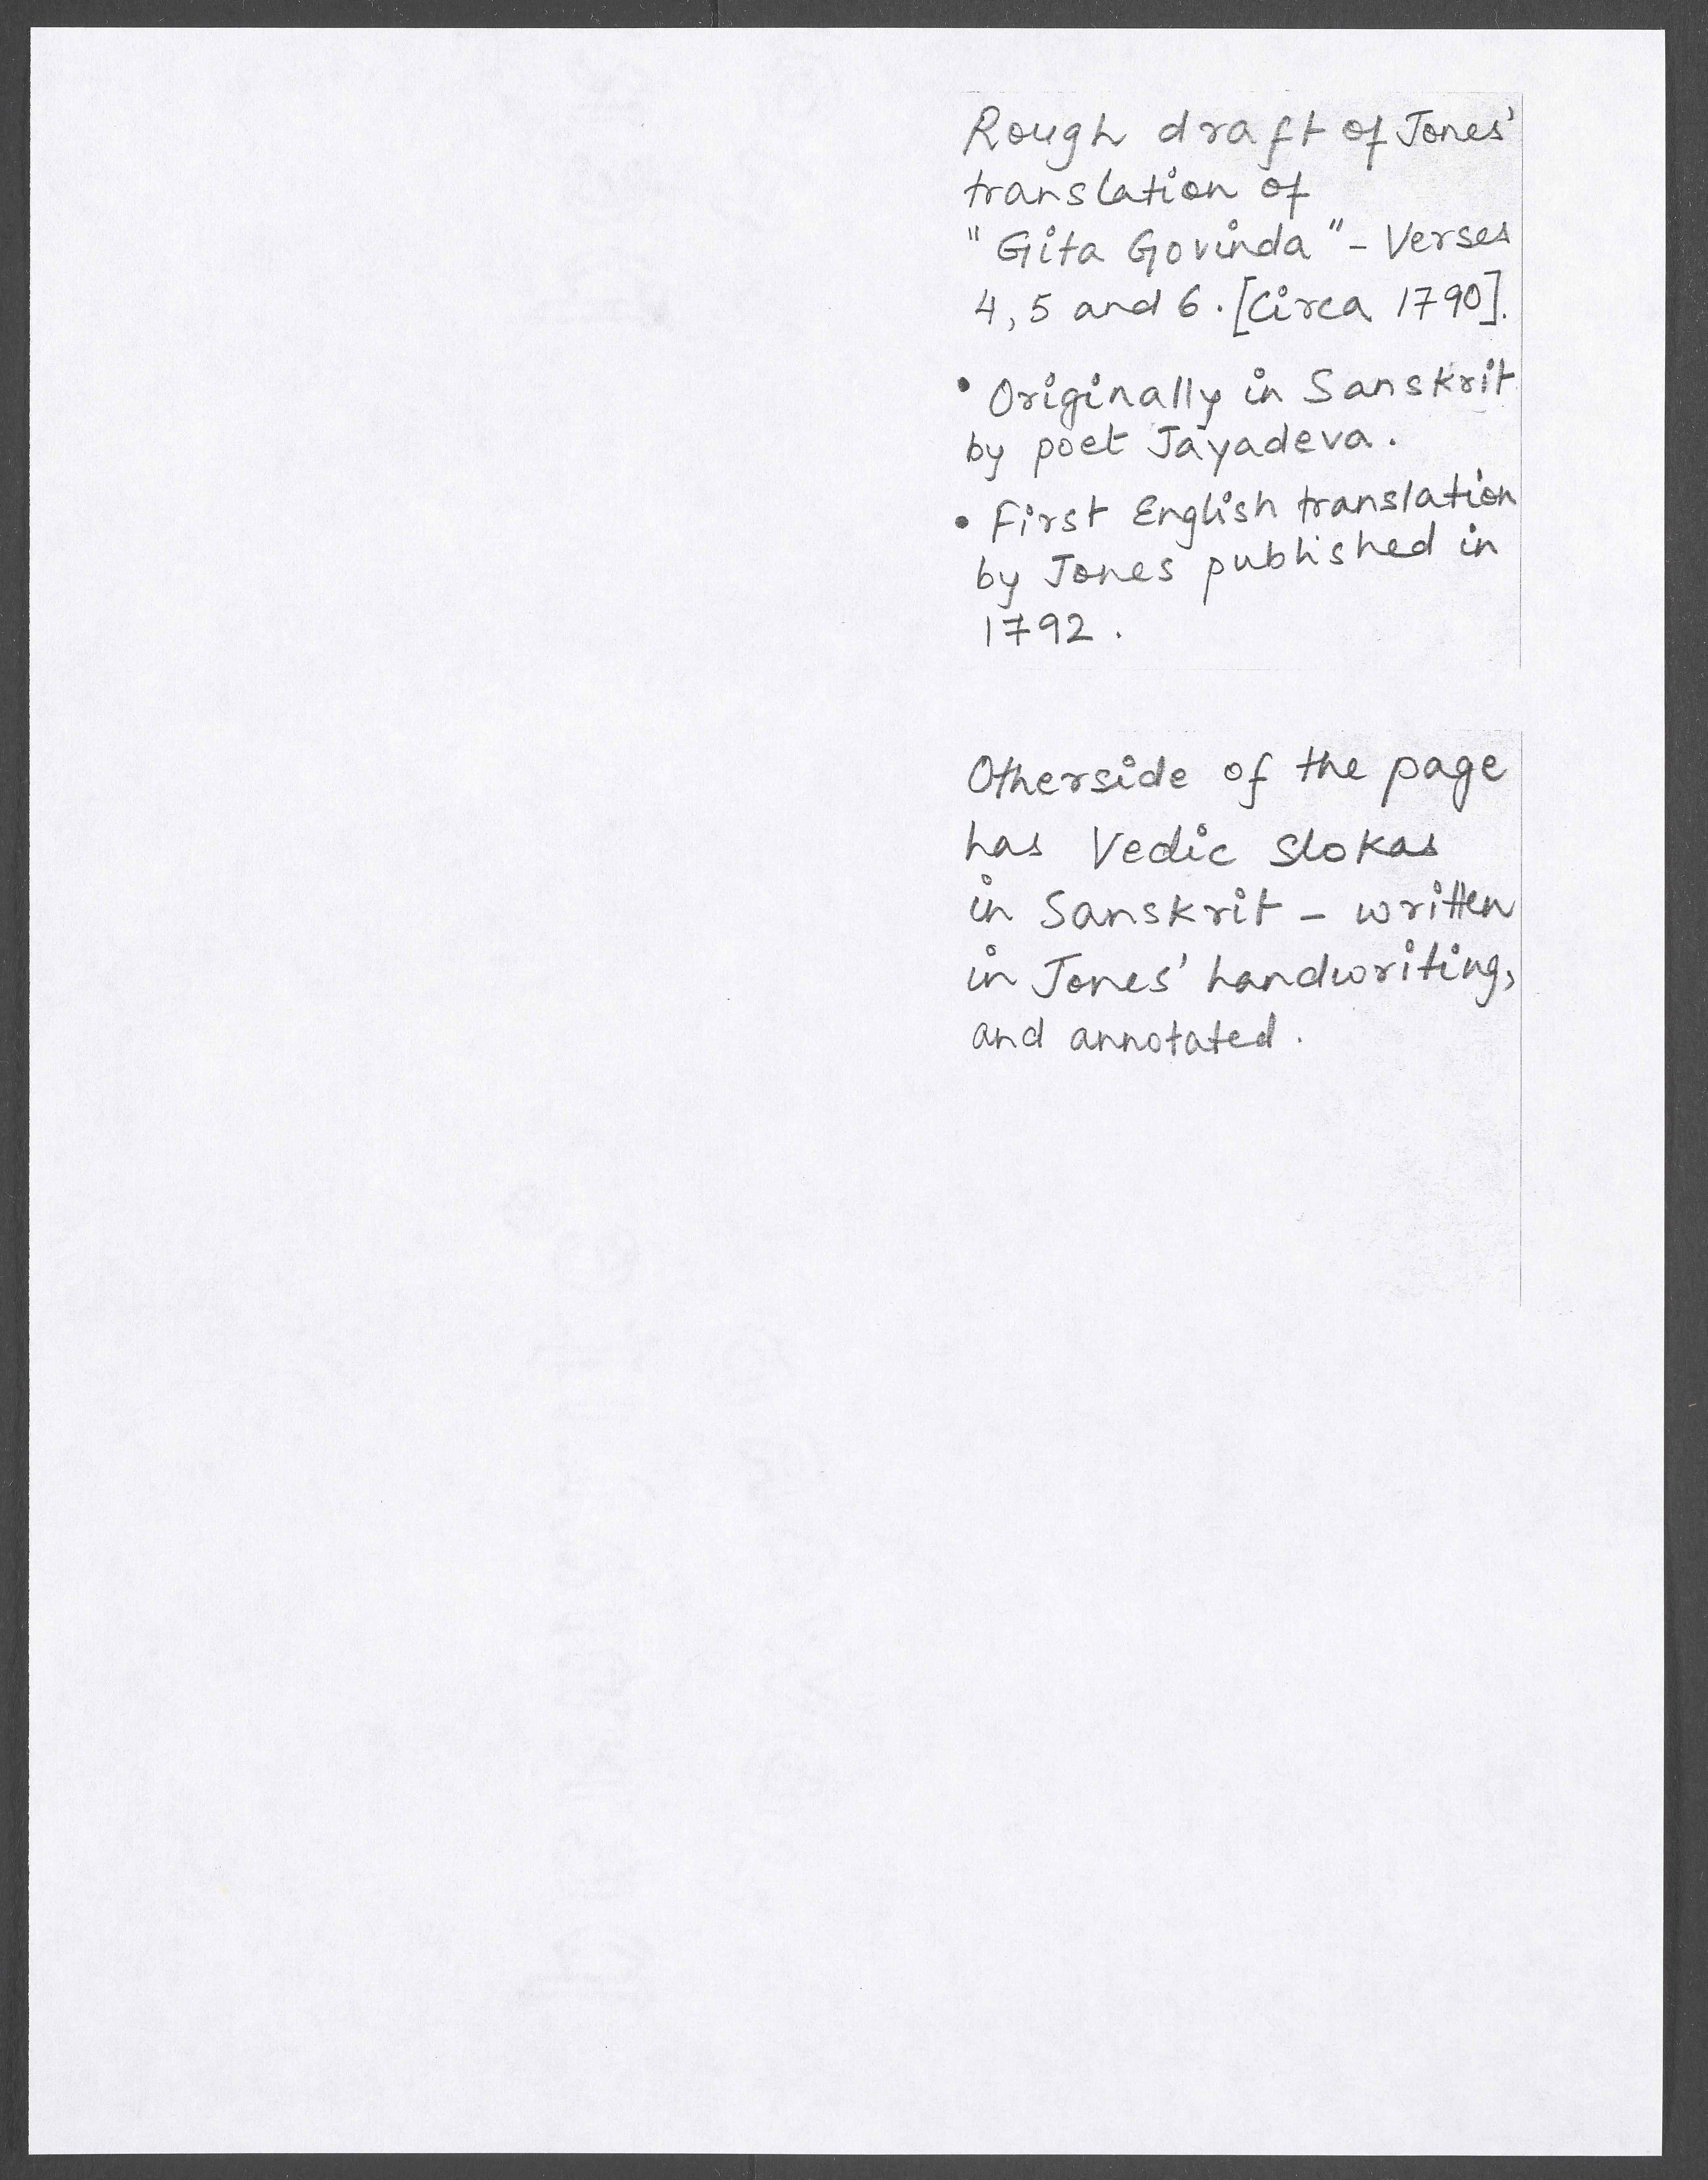 Rough draft of Jones'
translation of
"Gita Govinda" - Verses
4, 5 and 6. [Circa 1790].
• Originally in Sanskrit
by poet Jayadeva.
• First English translation
by Jones published in
1792.
Otherside of the page
has Vedic slokas
in Sanskrit - written
in Jones' handwriting,
and annotated.